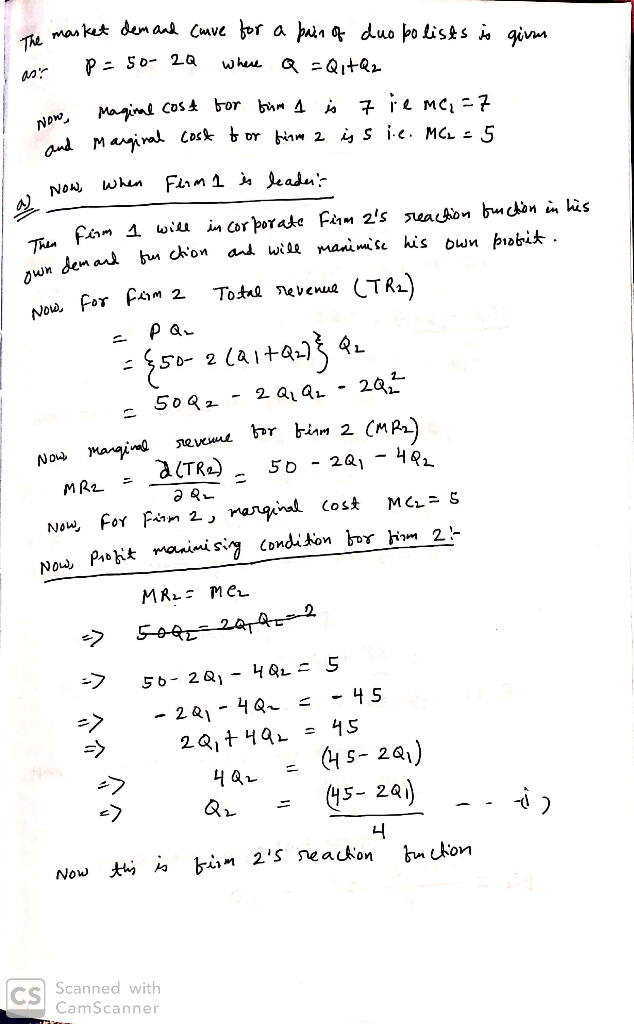 The market demand curve for a pair of duopolists is given
as:- P = 50 - 2Q where Q = Q1+Q2
Now, Maginal cost for firm 1 is 7 i.e MC1 = 7
and Marginal Cost for firm 2 is 5 i.e. MC2 = 5
a) Now when Firm 1 is leader:-
Then firm 1 will incorporate Firm 2's reaction function in his
own demand function and will maximise his own profit.
Now, For firm 2 Total revenue (TR2)
= P Q2
= {50 - 2 (Q1+Q2)} Q2
= 50Q2 - 2Q1Q2 - 2Q2²
Now marginal revenue for firm 2 (MR2)
MR2 = ∂(TR2)/∂Q2 = 50 - 2Q1 - 4Q2
Now, For Firm 2, marginal cost MC2 = 5
Now, Profit maximising condition for firm 2:-
MR2 = MC2
=> 50Q2 - 2Q1Q2 = 2
=> 50 - 2Q1 - 4Q2 = 5
=> -2Q1 - 4Q2 = -45
=> 2Q1 + 4Q2 = 45
=> 4Q2 = (45 - 2Q1)
=> Q2 = (45 - 2Q1)/4 - - - i)
Now this is firm 2's reaction function
CS Scanned with
CamScanner